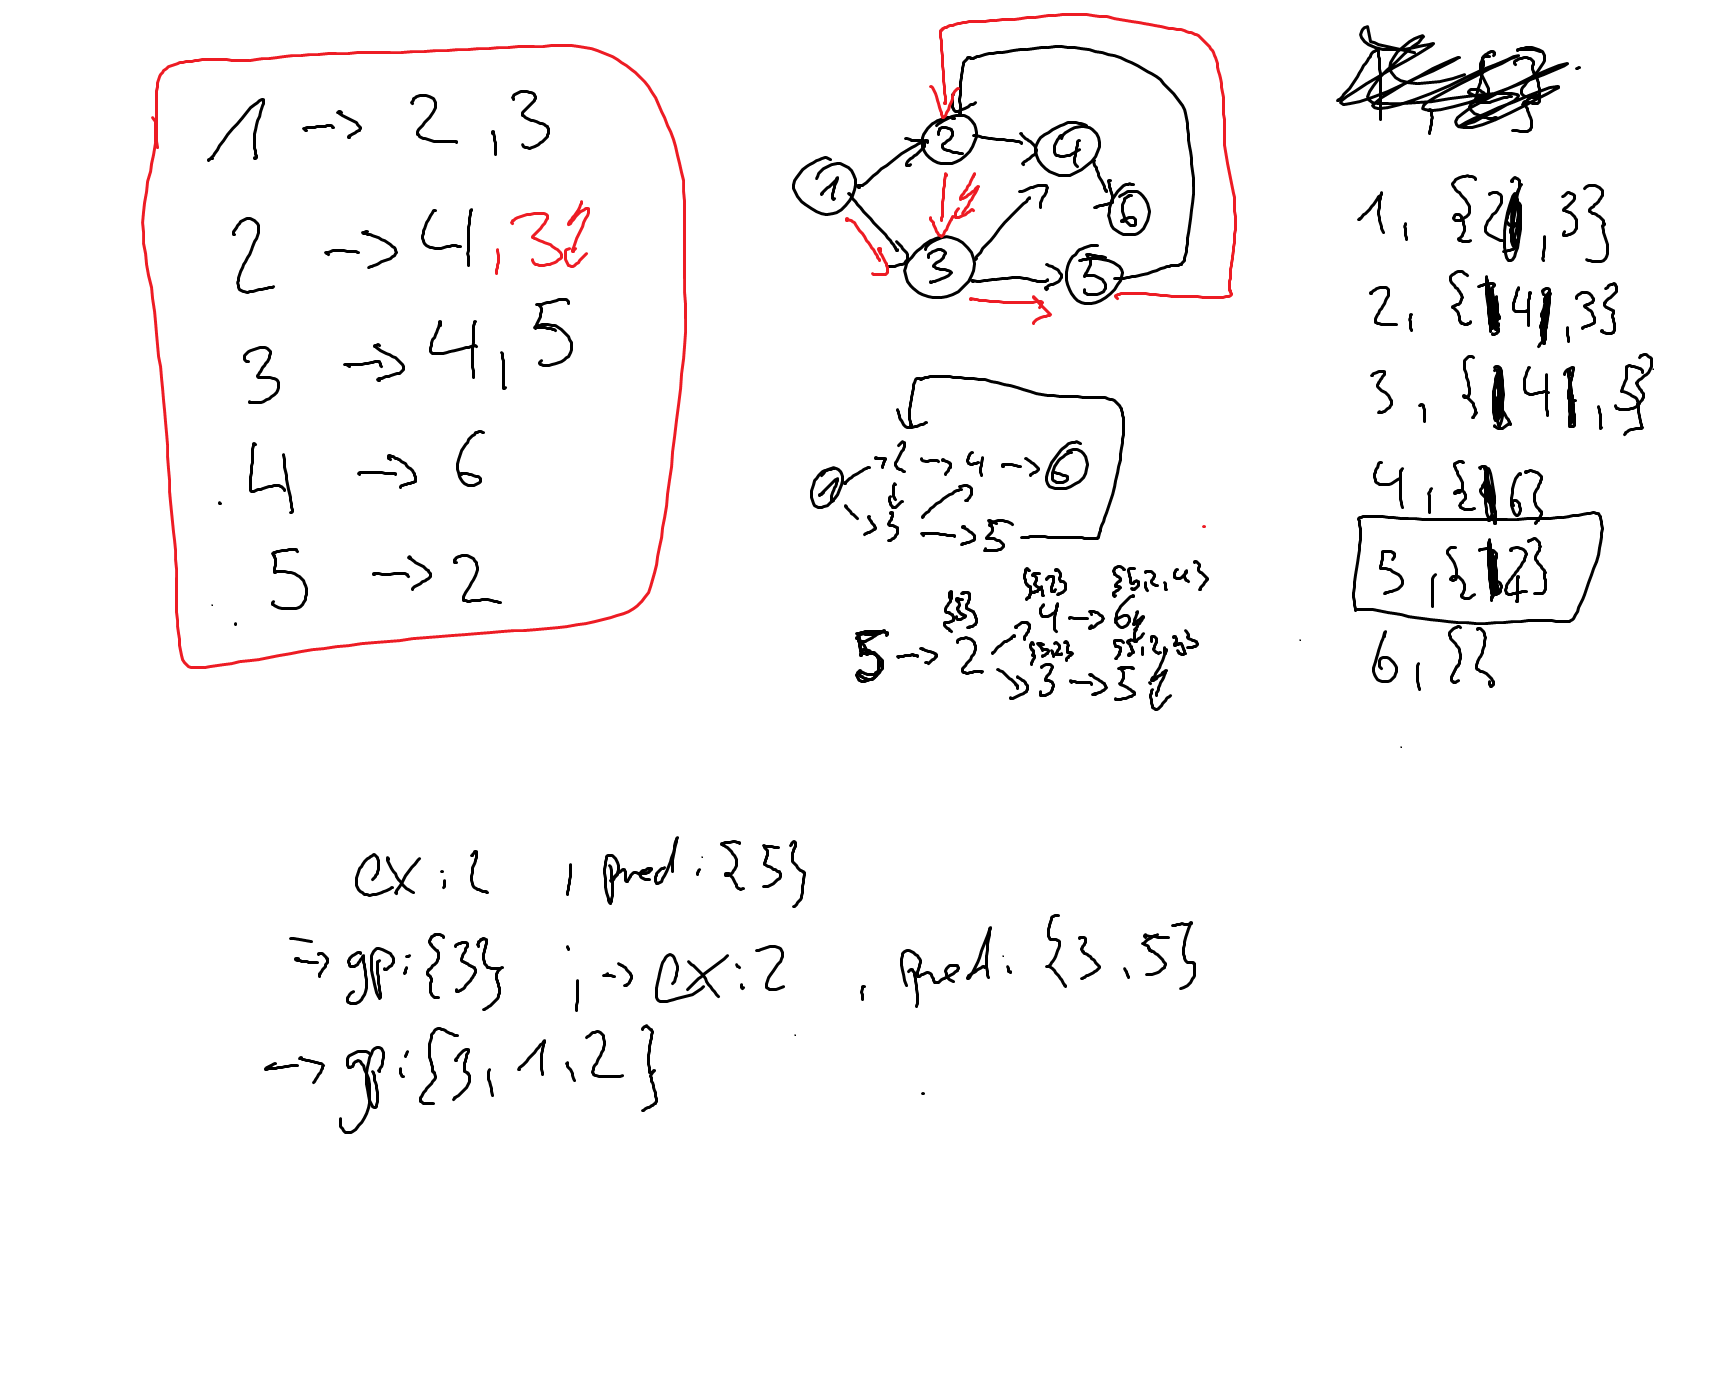 1 → 2, 3
2 → 4, 3
3 → 4, 5
4 → 6
5 → 2
1
2
4
6
3
5
1 → 2 → 4 → 6
→ 3 → 5
{5}
{5,2}
{5,2,4}
5 → 2
4 → 6
{5,2}
{5,2,3}
3 → 5
1, {2, 3}
2, {4, 3}
3, {4, 5}
4, {6}
5, {2}
6, {}
ex: 2 , pred: {5}
→ gp: {3} ; → ex: 2 , pred: {3, 5}
→ gp: {3, 1, 2}